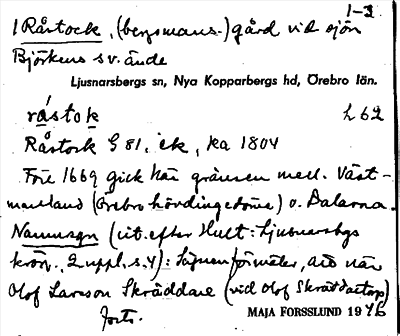 1-3
1 Råstock, (bergsmans-) gård vid sjön
Björkens sv. ände
Ljusnarsbergs sn, Nya Kopparbergs hd, Örebro län.
råstok L 62
Råstock G 81, ek, ka 1804
Före 1669 gick här gränsen mell. Väst-
manland (Örebro hövdingedöme) o. Dalarna.
Namnsägn (cit. efter Hult: Ljusnarsbgs
krön., 2 uppl. s. 4): Sägnen förmäler, att när
Olof Larsson Skräddare (vid Olof Skräddartorp)
forts. MAJA FORSSLUND 1946